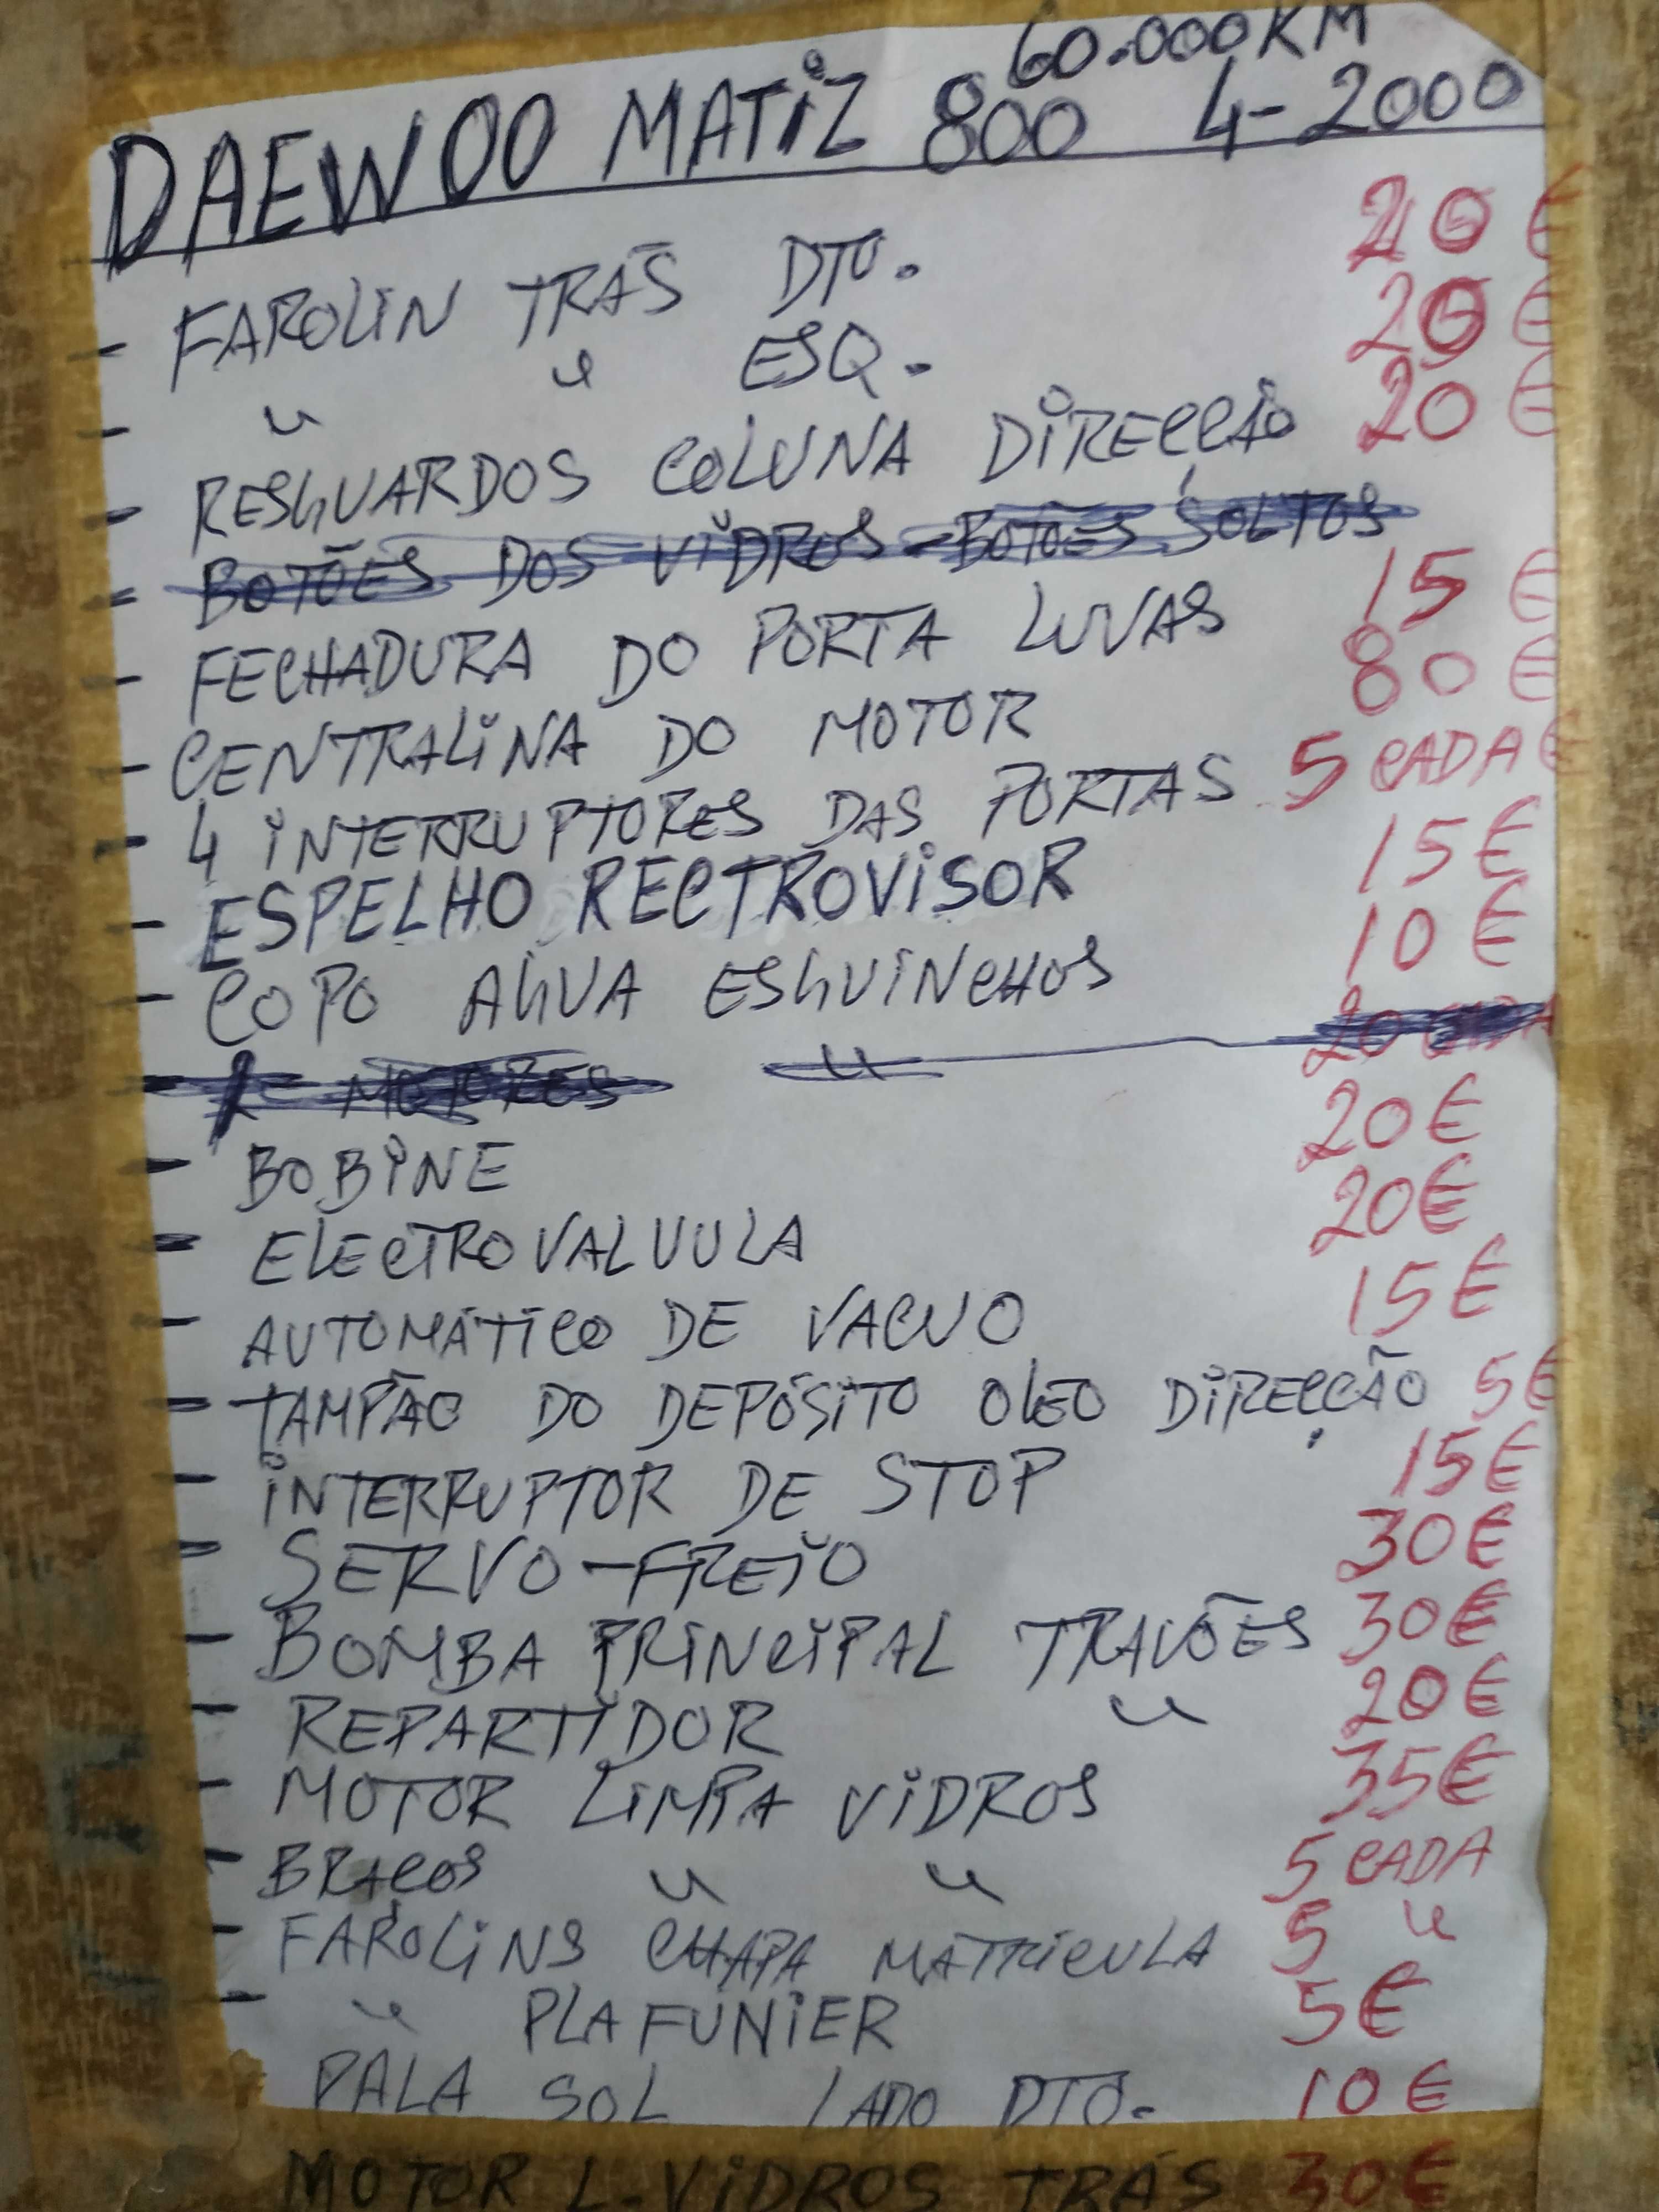 60.000KM
DAEWOO MATiZ 800 4-2000
- FAROLiN TRÁS DTO. 20 €
- " " ESQ. 20 €
- RESGUARDOS COLUNA DiRECÇÃO 20 €
- BOTÕES DOS ViDROS - BOTÕES SOLTOS
- FECHADURA DO PORTA LUVAS 15 €
- CENTRALiNA DO MOTOR 80 €
- 4 iNTERRUPTORES DAS PORTAS 5 CADA €
- ESPELHO RECTROViSOR 15 €
- COPO AGUA ESGUiNCHOS 10 €
- 2 MOTORES " 20 CADA
- BOBiNE 20 €
- ELECTROVALVULA 20 €
- AUTOMÁTiCO DE VACUO 15 €
- TAMPÃO DO DEPÓSiTO OLEO DiRECÇÃO 5 €
- iNTERRUPTOR DE STOP 15 €
- SERVO-FREiO 30 €
- BOMBA PRiNCiPAL TRAVÕES 30 €
- REPARTiDOR " 20 €
- MOTOR LiMPA ViDROS 35 €
- BRAÇOS " " 5 CADA
- FAROLiNS CHAPA MATRiCULA 5 "
- " PLAFUNiER 5 €
PALA SOL LADO DTO. 10 €
MOTOR L-ViDROS TRÁS 30 €